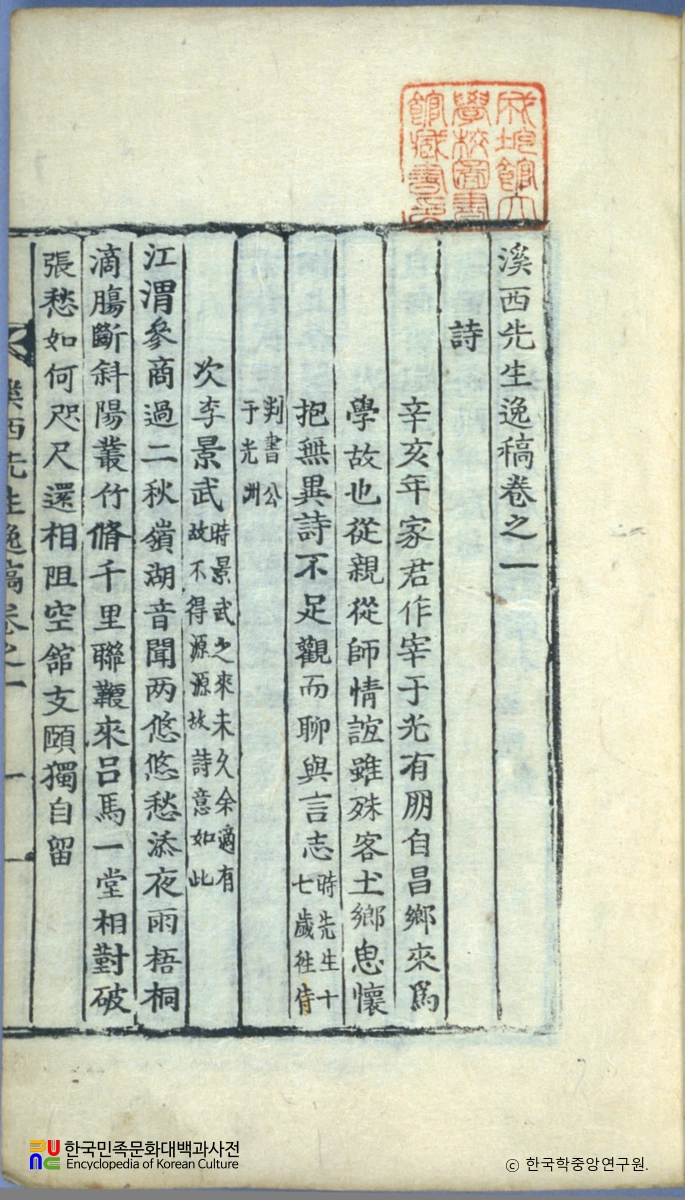 成均館大
學校圖書
館藏書之印
溪西先生逸稿卷之一
詩
辛亥年家君作宰于光有朋自昌鄉來爲
學故也從親從師情誼雖殊客土鄉思懷
抱無異詩不足觀而聊與言志時先生十七歲徃侍
判書公于光州
次李景武時景武之來未久余適有故不得源源故詩意如此
江渭參商過二秋嶺湖音聞两悠悠愁添夜雨梧桐
滴膓斷斜陽叢竹脩千里聯鞭來呂馬一堂相對破
張愁如何咫尺還相阻空舘支頤獨自留
溪西先生逸稿卷之一
一
한국민족문화대백과사전
Encyclopedia of Korean Culture
ⓒ 한국학중앙연구원.